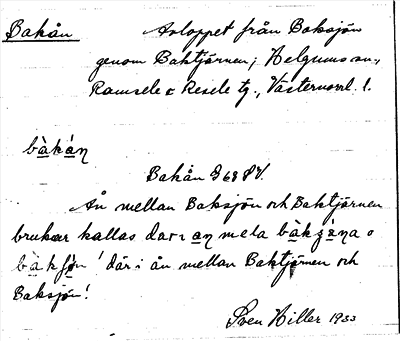 Bakån Avloppet från Baksjön
genom Baktjärnen; Helgums sn.,
Ramsele o Resele tg., Västernorrl. l.
bàkán
Bakån G 68
Ån mellan Baksjön och Baktjärnen
brukar kallas dar i an mela
' där i ån mellan Baktjärnen och
Baksjön!
Sven Hiller 1933